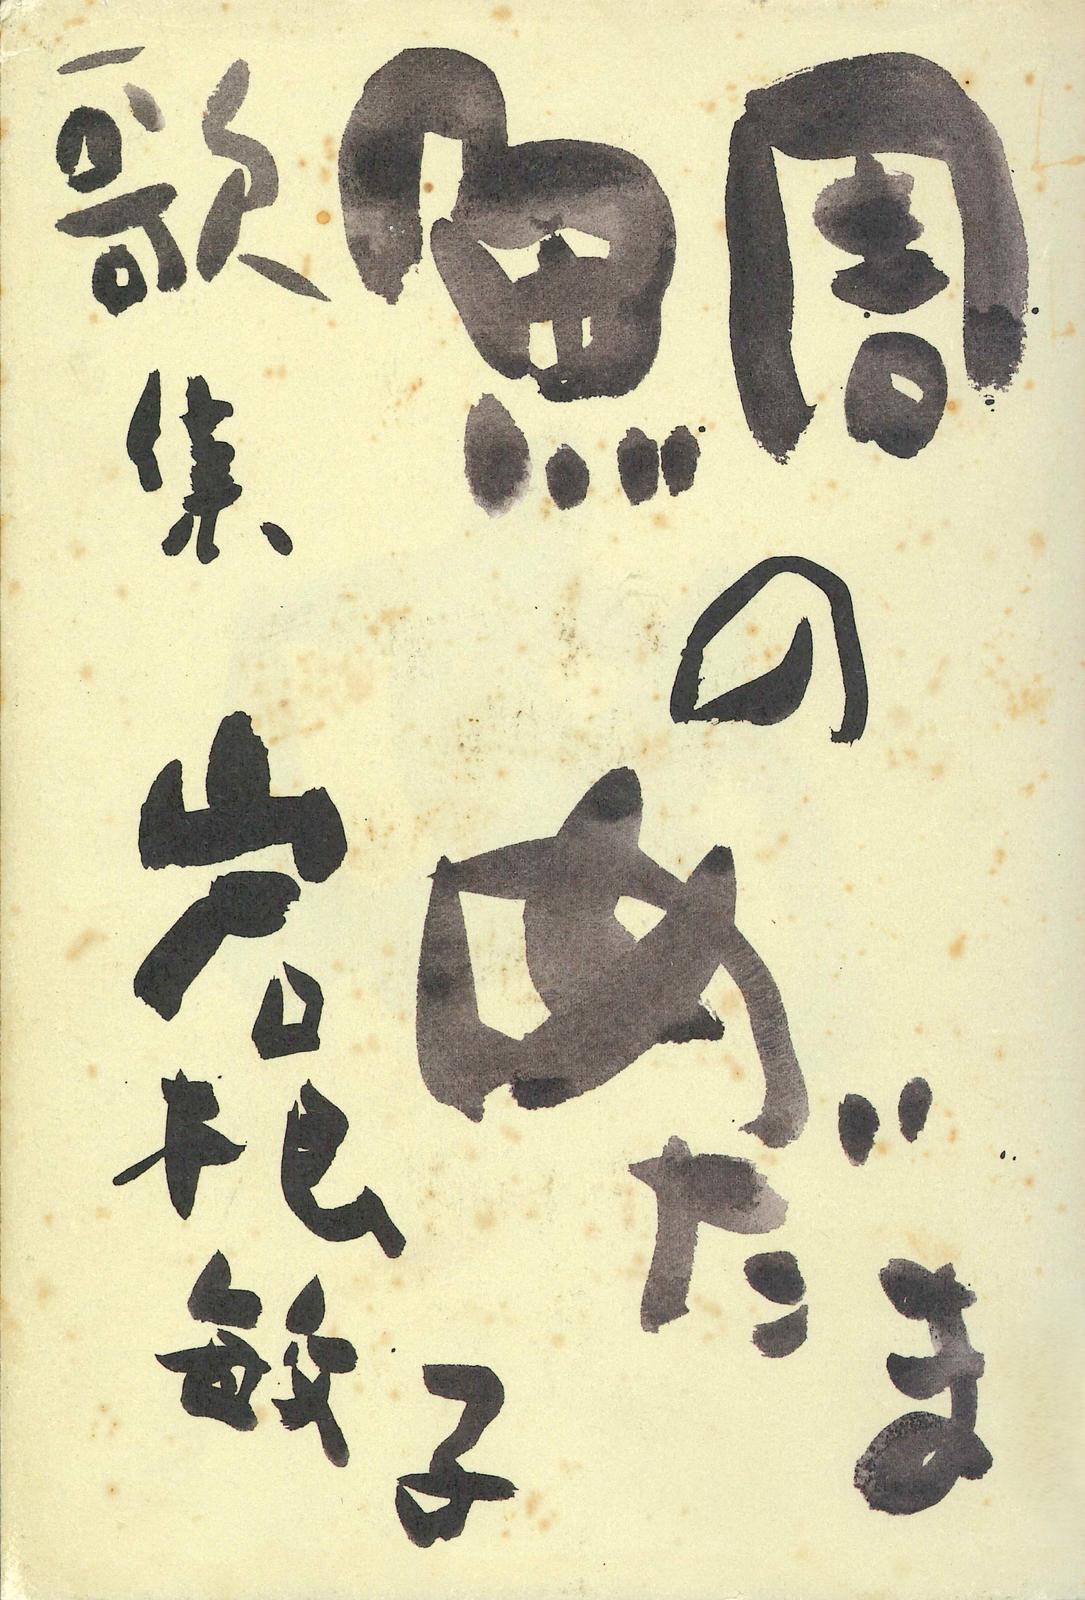 鯛のめだま
歌集 岩根敏子